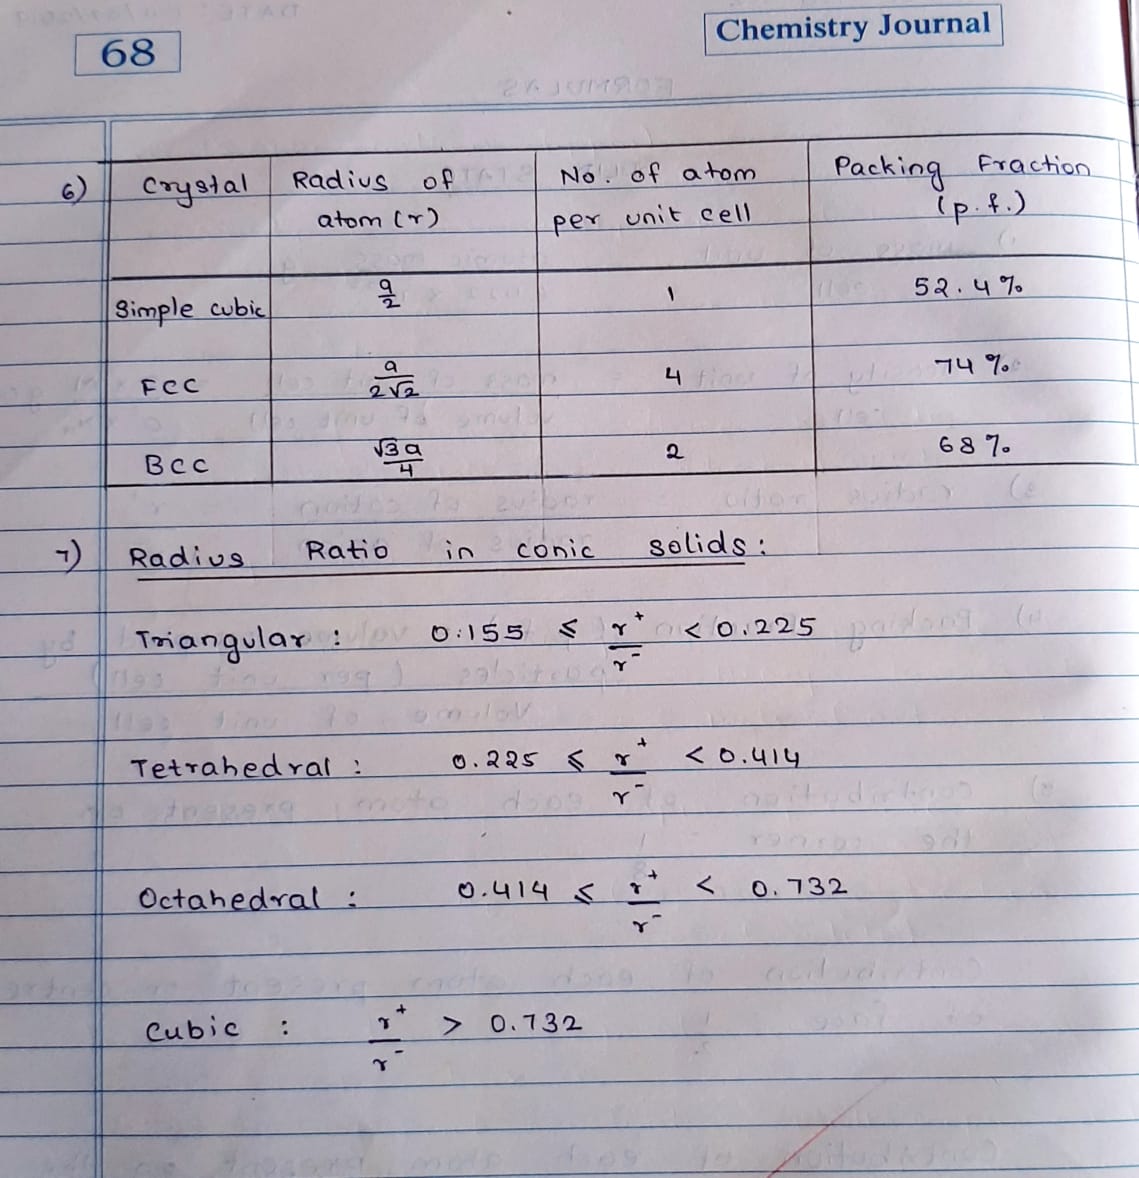 68
Chemistry Journal
6) Crystal | Radius of atom (r) | No. of atom per unit cell | Packing Fraction (p.f.)
Simple cubic | a/2 | 1 | 52.4%
FCC | a/2√2 | 4 | 74%
BCC | √3a/4 | 2 | 68%
7) Radius Ratio in conic solids:
Triangular : 0.155 ≤ r⁺/r⁻ < 0.225
Tetrahedral : 0.225 ≤ r⁺/r⁻ < 0.414
Octahedral : 0.414 ≤ r⁺/r⁻ < 0.732
Cubic : r⁺/r⁻ > 0.732